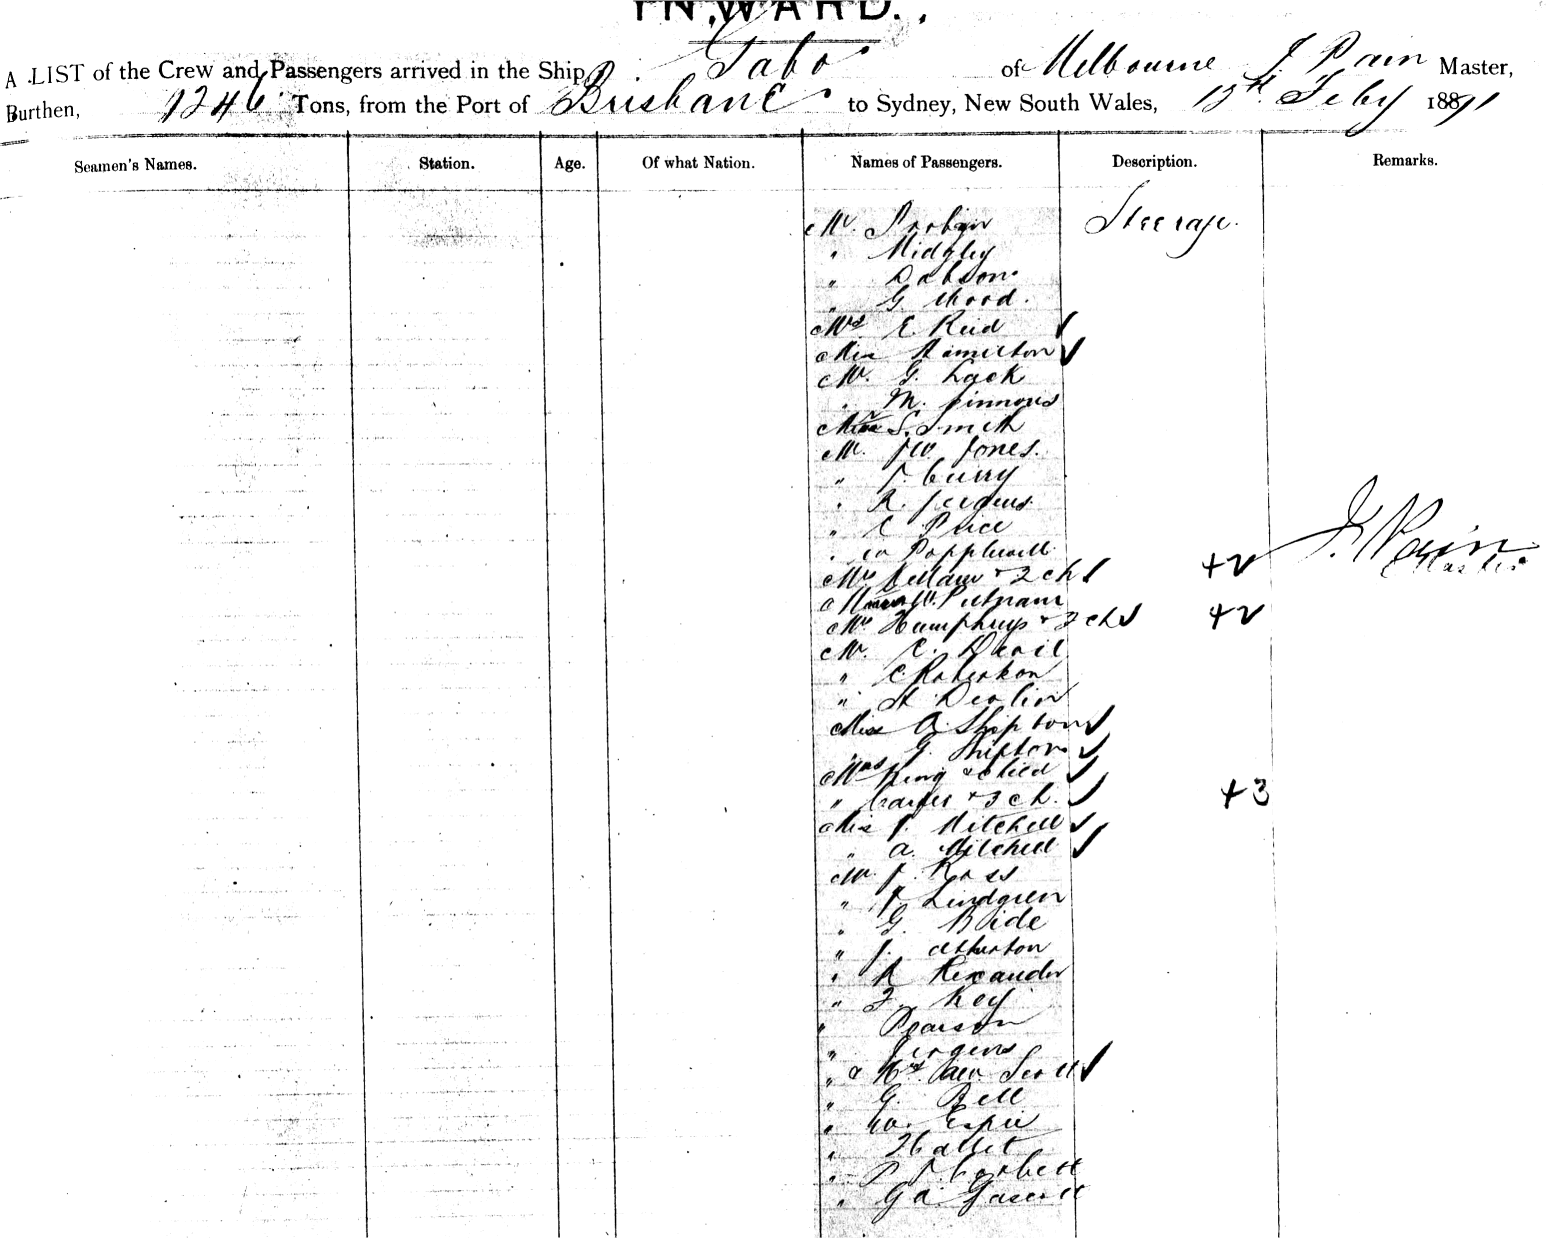 INWARD.
A LIST of the Crew and Passengers arrived in the Ship Gabo of Melbourne J Pain Master,
Burthen, 1246 Tons, from the Port of Brisbane to Sydney, New South Wales, 13th Feby 1891
Seamen's Names. Station. Age. Of what Nation. Names of Passengers. Description. Remarks.
Mr. Steerage.
" Midgley
" Dobson
" G Wood.
Mrs E. Reid ✓
Miss Hamilton ✓
Mr. G. Lack
" M. Simmons
S. Smith
Mr. J W Jones.
" J. Curry
" R. Jergens
" E Price
J. Pain
" W Popplewell Master
Mrs + 2 ch ✓ +2
W. Putnam
Mrs Humphrys + 3 ch ✓ +2
Mr. C. David
" C Robertson
" H Devlin
Miss A. Shipton ✓
" G. Shipton ✓
Mrs King & child ✓
" + 3 ch. ✓ +3
Miss J. Mitchell ✓
" A. Mitchell ✓
Mr J. Ross
" J Lindgren
" G. Bride
" J. Atherton
" R Alexander
" F. Key
" Pearson
" Jergens
" & Mrs Scott ✓
" G. Bell
" W. Espie
" Hallet
" Corbett
" G A.